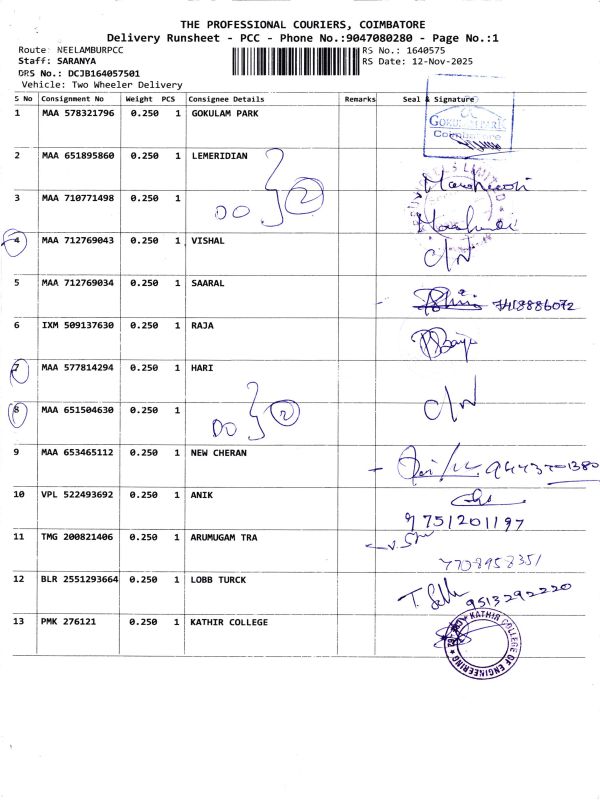 THE PROFESSIONAL COURIERS, COIMBATORE
Delivery Runsheet - PCC - Phone No.:9047080280 - Page No.:1
Route: NEELAMBURPCC RS No.: 1640575
Staff: SARANYA RS Date: 12-Nov-2025
DRS No.: DCJB164057501
Vehicle: Two Wheeler Delivery
S No Consignment No Weight PCS Consignee Details Remarks Seal & Signature
1 MAA 578321796 0.250 1 GOKULAM PARK
GOKULAM PARK
Coimbatore
2 MAA 651895860 0.250 1 LEMERIDIAN
3 MAA 710771498 0.250 1
DO 2
4 MAA 712769043 0.250 1 VISHAL C/N
5 MAA 712769034 0.250 1 SAARAL
7418886072
6 IXM 509137630 0.250 1 RAJA
7 MAA 577814294 0.250 1 HARI
8 MAA 651504630 0.250 1 C/N
DO 2
9 MAA 653465112 0.250 1 NEW CHERAN
10 VPL 522493692 0.250 1 ANIK
9751201197
11 TMG 200821406 0.250 1 ARUMUGAM TRA
7708958351
12 BLR 2551293664 0.250 1 LOBB TURCK
9513292220
13 PMK 276121 0.250 1 KATHIR COLLEGE
KATHIR COLLEGE OF ENGINEERING